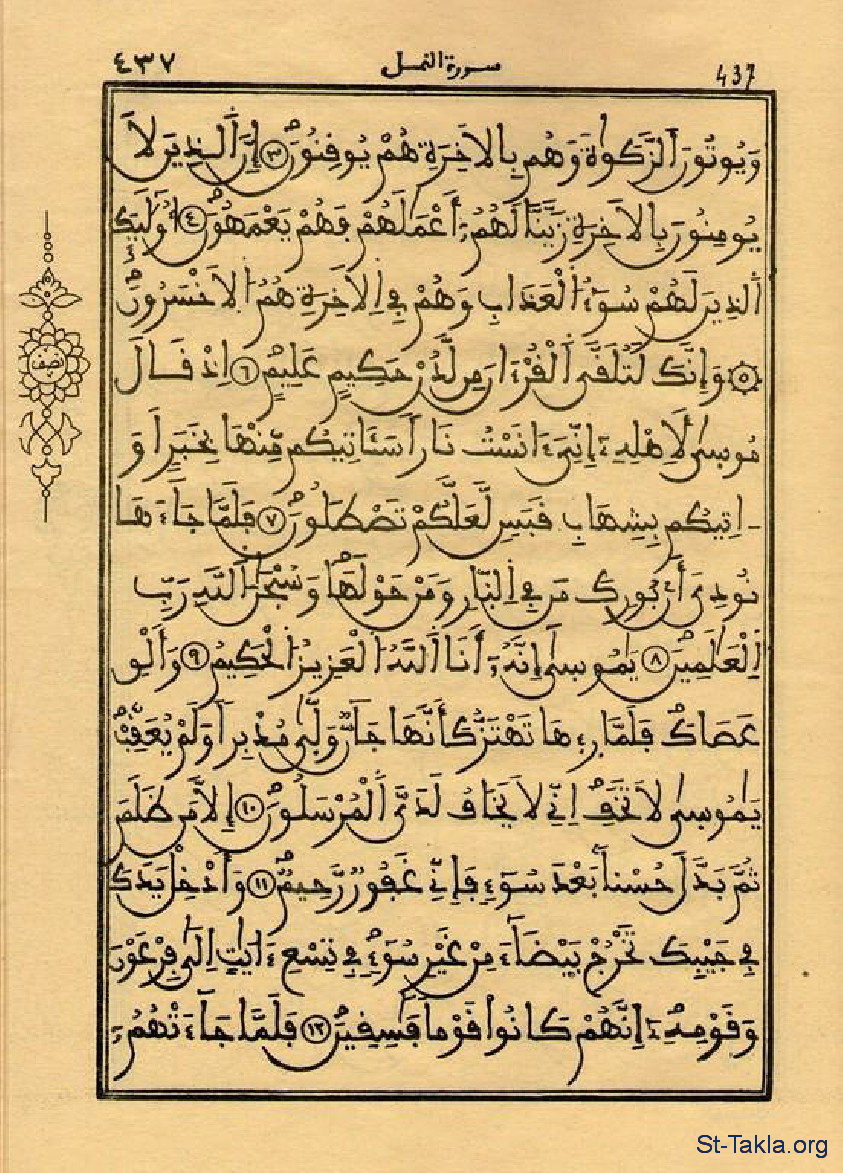 ٤٣٧ سورة النمل 437
وَيُوتُونَ اَلزَّكَوٰةَ وَهُم بِالَاخِرَةِ هُمْ يُوقِنُونَ ٣ إِنَّ اَلذِينَ لَا
يُومِنُونَ بِالَاخِرَةِ زَيَّنَّا لَهُمُۥٓ أَعْمَٰلَهُمْ فَهُمْ يَعْمَهُونَ ٤ أُوْلَٰٓئِكَ
اَلذِينَ لَهُمْ سُوٓءُ اُلْعَذَابِ وَهُمْ فِي اِلَاخِرَةِ هُمُ اُلَاخْسَرُونَ
٥ وَإِنَّكَ لَتُلَقَّى اَلْقُرْءَانَ مِن لَّدُنْ حَكِيمٍ عَلِيمٍ ٦ اِذْ قَالَ
مُوسِىٰ لِأَهْلِهِۦٓ إِنِّيَ ءَانَسْتُ نَاراً سَـَٔاتِيكُم مِّنْهَا بِخَبَرٍ اَوَ
اٰتِيكُم بِشِهَابِ قَبَسٍ لَّعَلَّكُمْ تَصْطَلُونَ ٧ فَلَمَّا جَآءَهَا
نُودِيَ أَنۢ بُورِكَ مَن فِي اِلنّارِ وَمَنْ حَوْلَهَا وَسُبْحَٰنَ اَللَّهِ رَبِّ
اِلْعَٰلَمِينَ ٨ يَٰمُوسِىٰٓ إِنَّهُۥٓ أَنَا اَللَّهُ اُلْعَزِيزُ اُلْحَكِيمُ ٩ وَأَلْقِ
عَصَاكَ فَلَمَّا رِءِاهَا تَهْتَزُّ كَأَنَّهَا جَآنٌّ وَلِّىٰ مُدْبِراً وَلَمْ يُعَقِّبْ
يَٰمُوسِىٰ لَا تَخَفِ اِنِّي لَا يَخَافُ لَدَيَّ اَلْمُرْسَلُونَ ١٠ إِلَّا مَن ظَلَمَ
ثُمَّ بَدَّلَ حُسْناً بَعْدَ سُوٓءٍ فَإِنِّي غَفُورٌ رَّحِيمٌ ١١ وَأَدْخِلْ يَدَكَ
فِي جَيْبِكَ تَخْرُجْ بَيْضَآءَ مِنْ غَيْرِ سُوٓءٍ فِي تِسْعِ ءَايَٰتٍ اِلَىٰ فِرْعَوْنَ
وَقَوْمِهِۦٓ إِنَّهُمْ كَانُوا قَوْماً فَٰسِقِينَ ١٢ فَلَمَّا جَآءَتْهُمُۥٓ
نصف
St-Takla.org